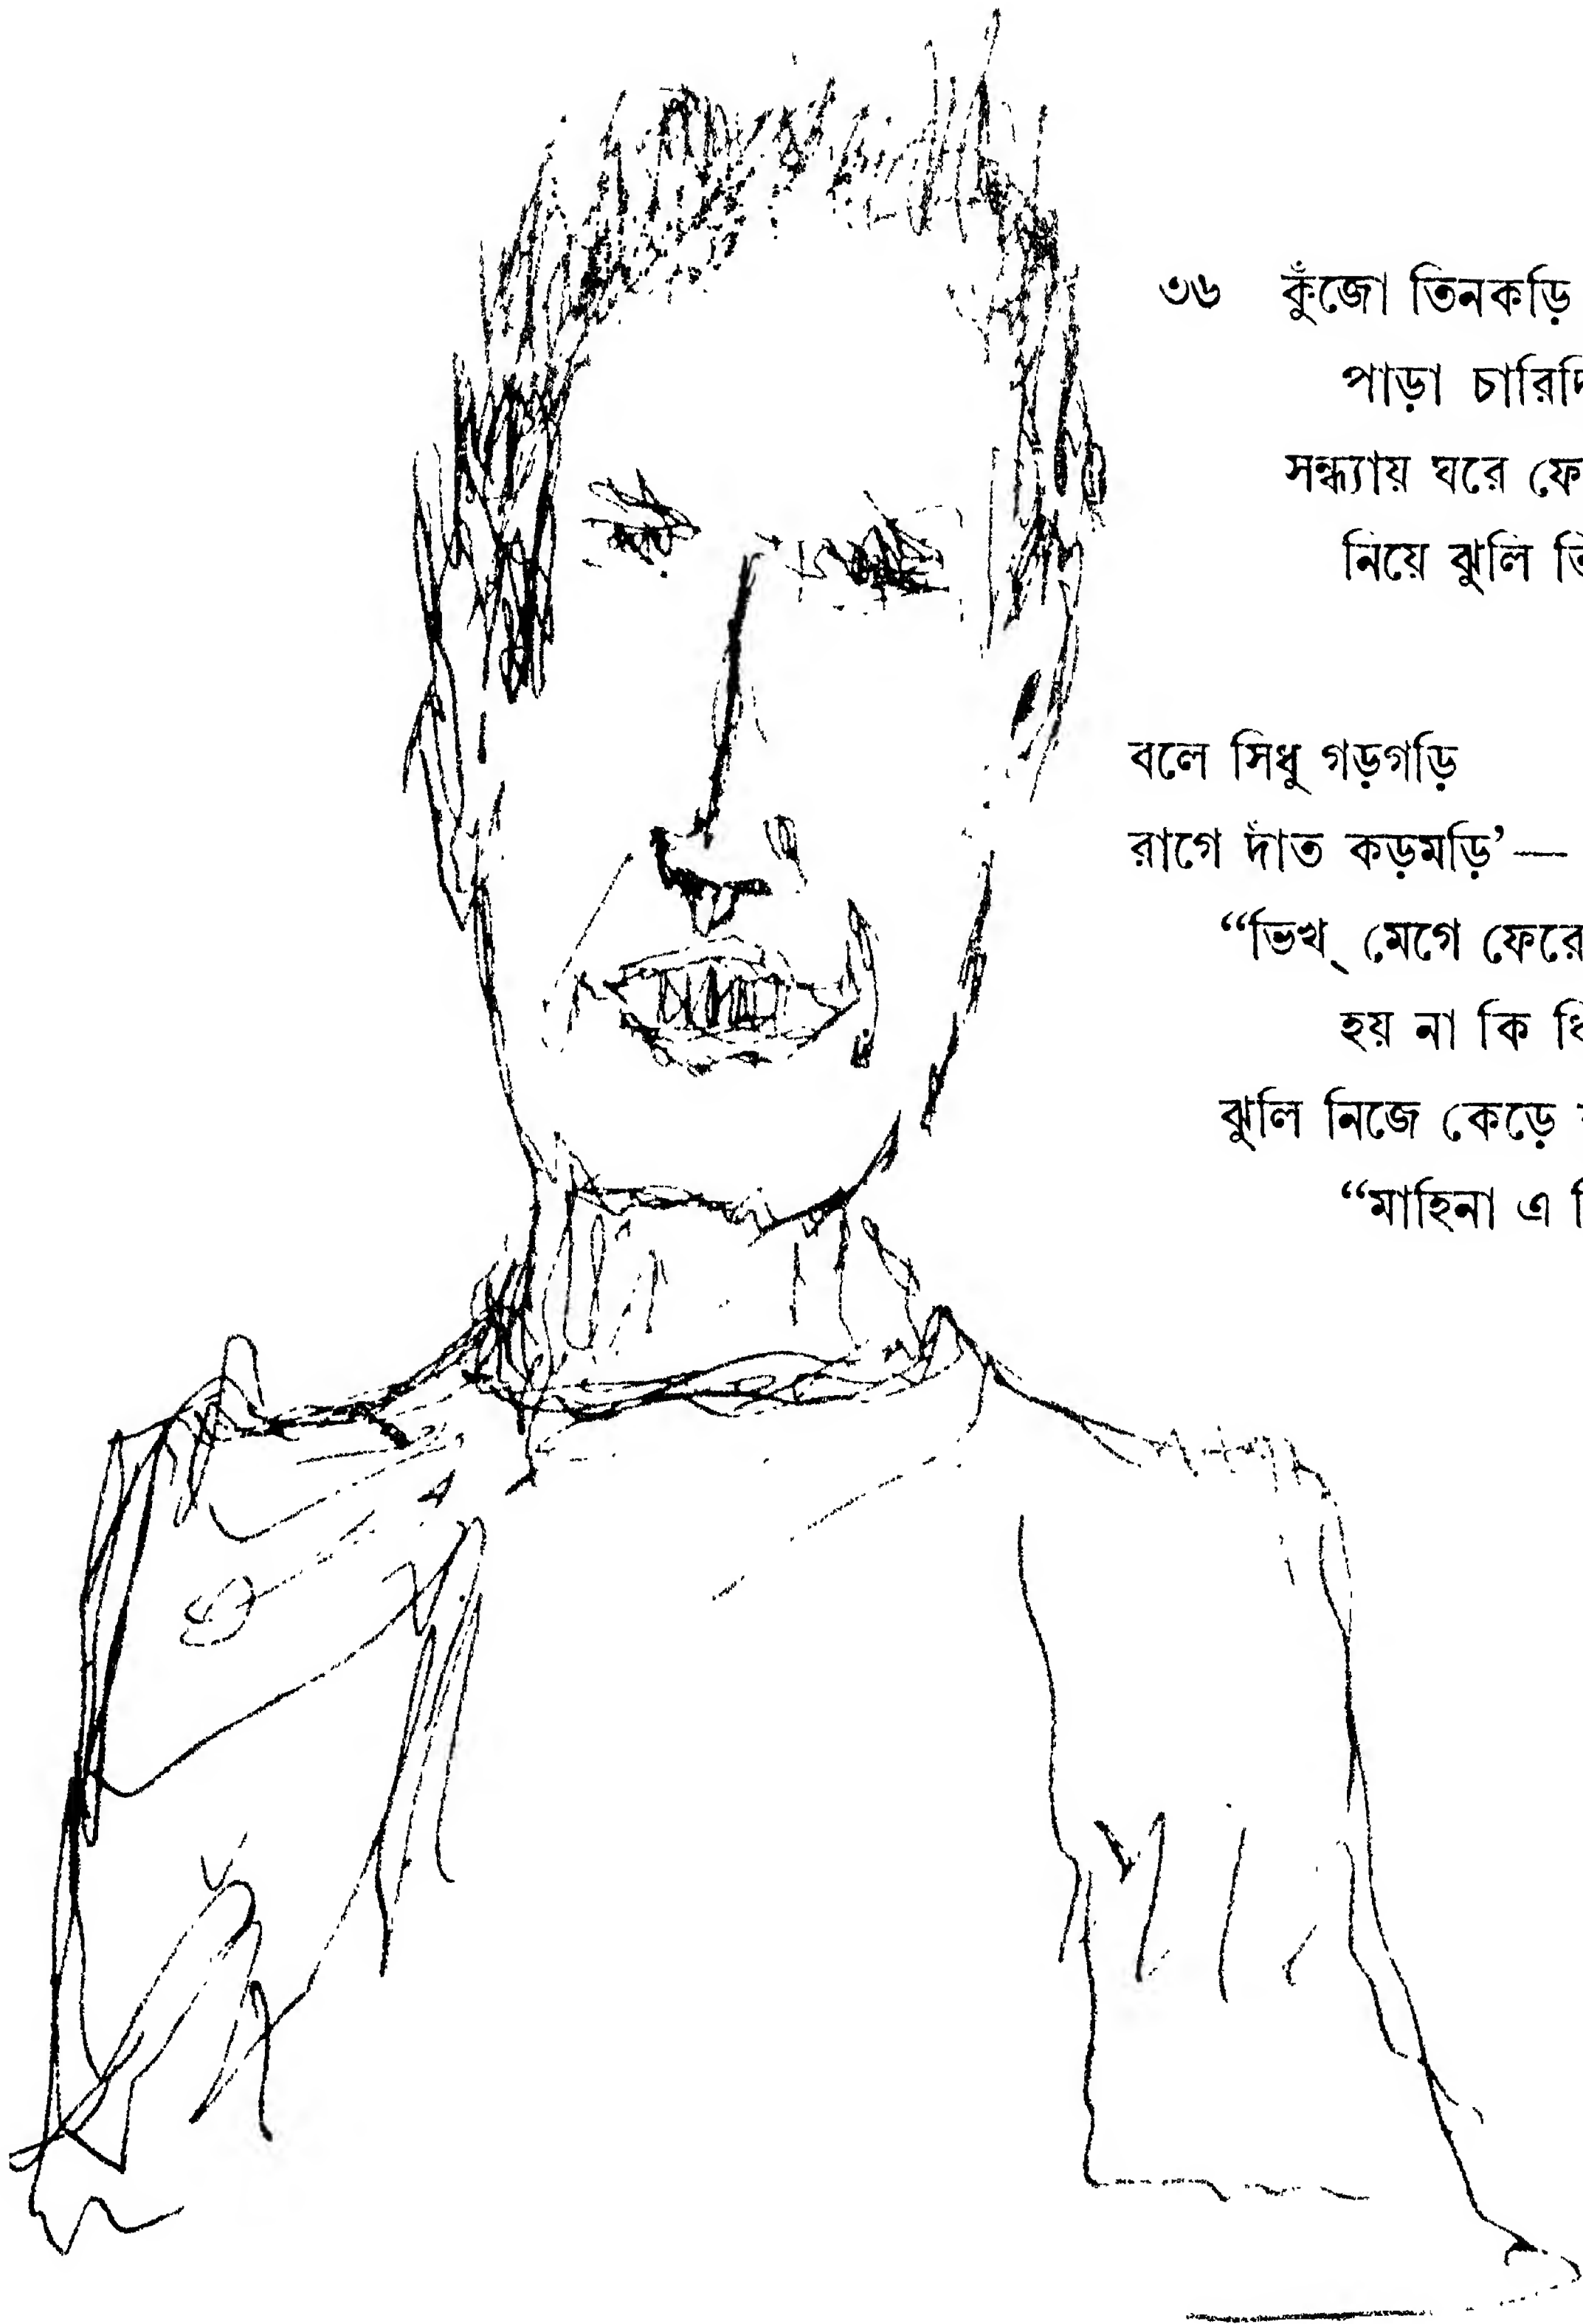 ৩৬ কুঁজো তিনকড়ি
পাড়া চারিদি
সন্ধ্যায় ঘরে ফে
নিয়ে ঝুলি
বলে সিধু গড়গড়ি
রাগে দাঁত কড়মড়ি’—
“ভিখ্ মেগে ফেরো
হয় না কি
ঝুলি নিজে কেড়ে
“মাহিনা এ